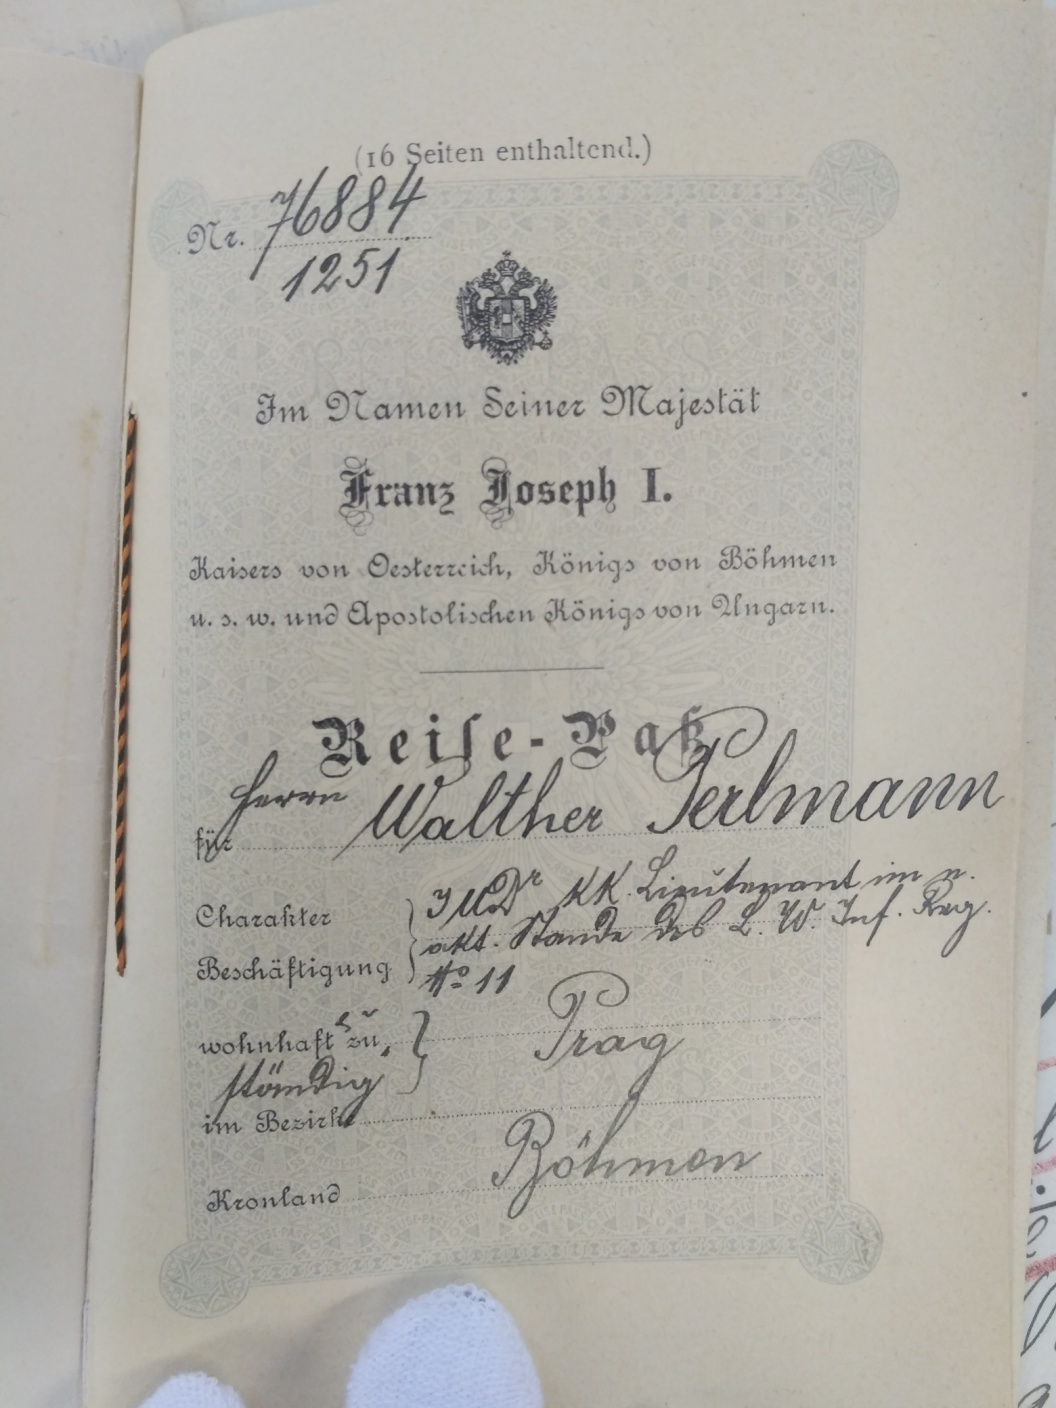 (16 Seiten enthaltend.)
Nr. 76884
1251
Im Namen Seiner Majestät
Franz Joseph I.
Kaisers von Oesterreich, Königs von Böhmen
u. s. w. und Apostolischen Königs von Ungarn.
Reise-Paß
für Herrn Walther Perlmann
Charakter JUDr KK. Lieutenant im n.
akt. Stande des L. W. Inf. Reg.
Beschäftigung No 11
wohnhaft zu, Prag
ständig
im Bezirke
Kronland Böhmen